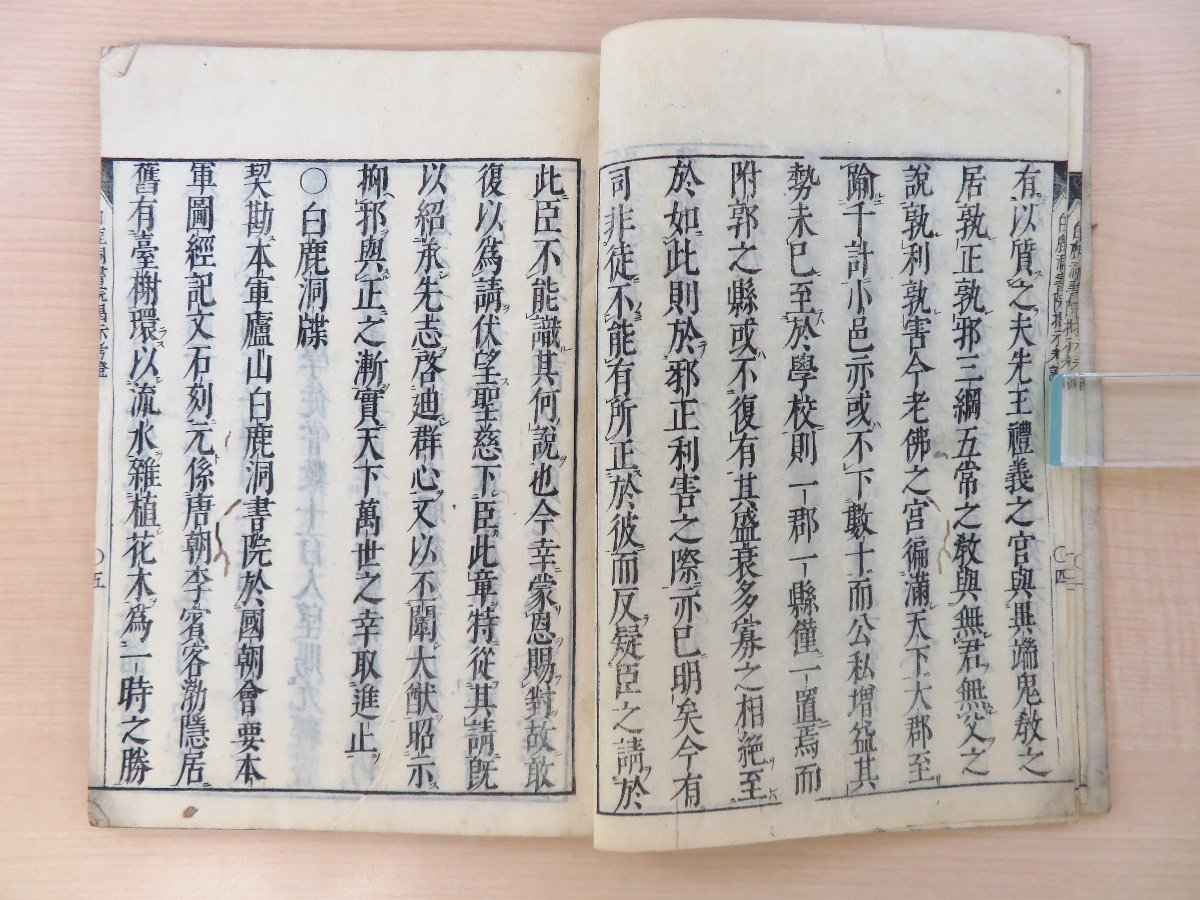 有以質之夫先王禮義之宮與異端鬼敎之
居孰正孰邪三綱五常之敎與無君無父之
說孰利孰害今老佛之宮徧滿天下大郡至
踰千計小邑亦或不下數十而公私增益其
勢未已至於學校則一郡一縣僅一置焉而
附郭之縣或不復有其盛衰多寡之相絶至
於如此則於邪正利害之際亦已明矣今有
司非徒不能有所正於彼而反疑臣之請於
此臣不能識其何說也今幸蒙恩賜對故敢
復以爲請伏望聖慈下臣此章特從其請旣
以紹承先志啓迪群心又以不闡大猷昭示
抑邪與正之漸實天下萬世之幸取進止
○白鹿洞牒
契勘本軍廬山白鹿洞書院於國朝會要本
軍圖經記文石刻元係唐朝李賓客渤隱居
舊有臺榭環以流水雜植花木爲一時之勝
○四
○五